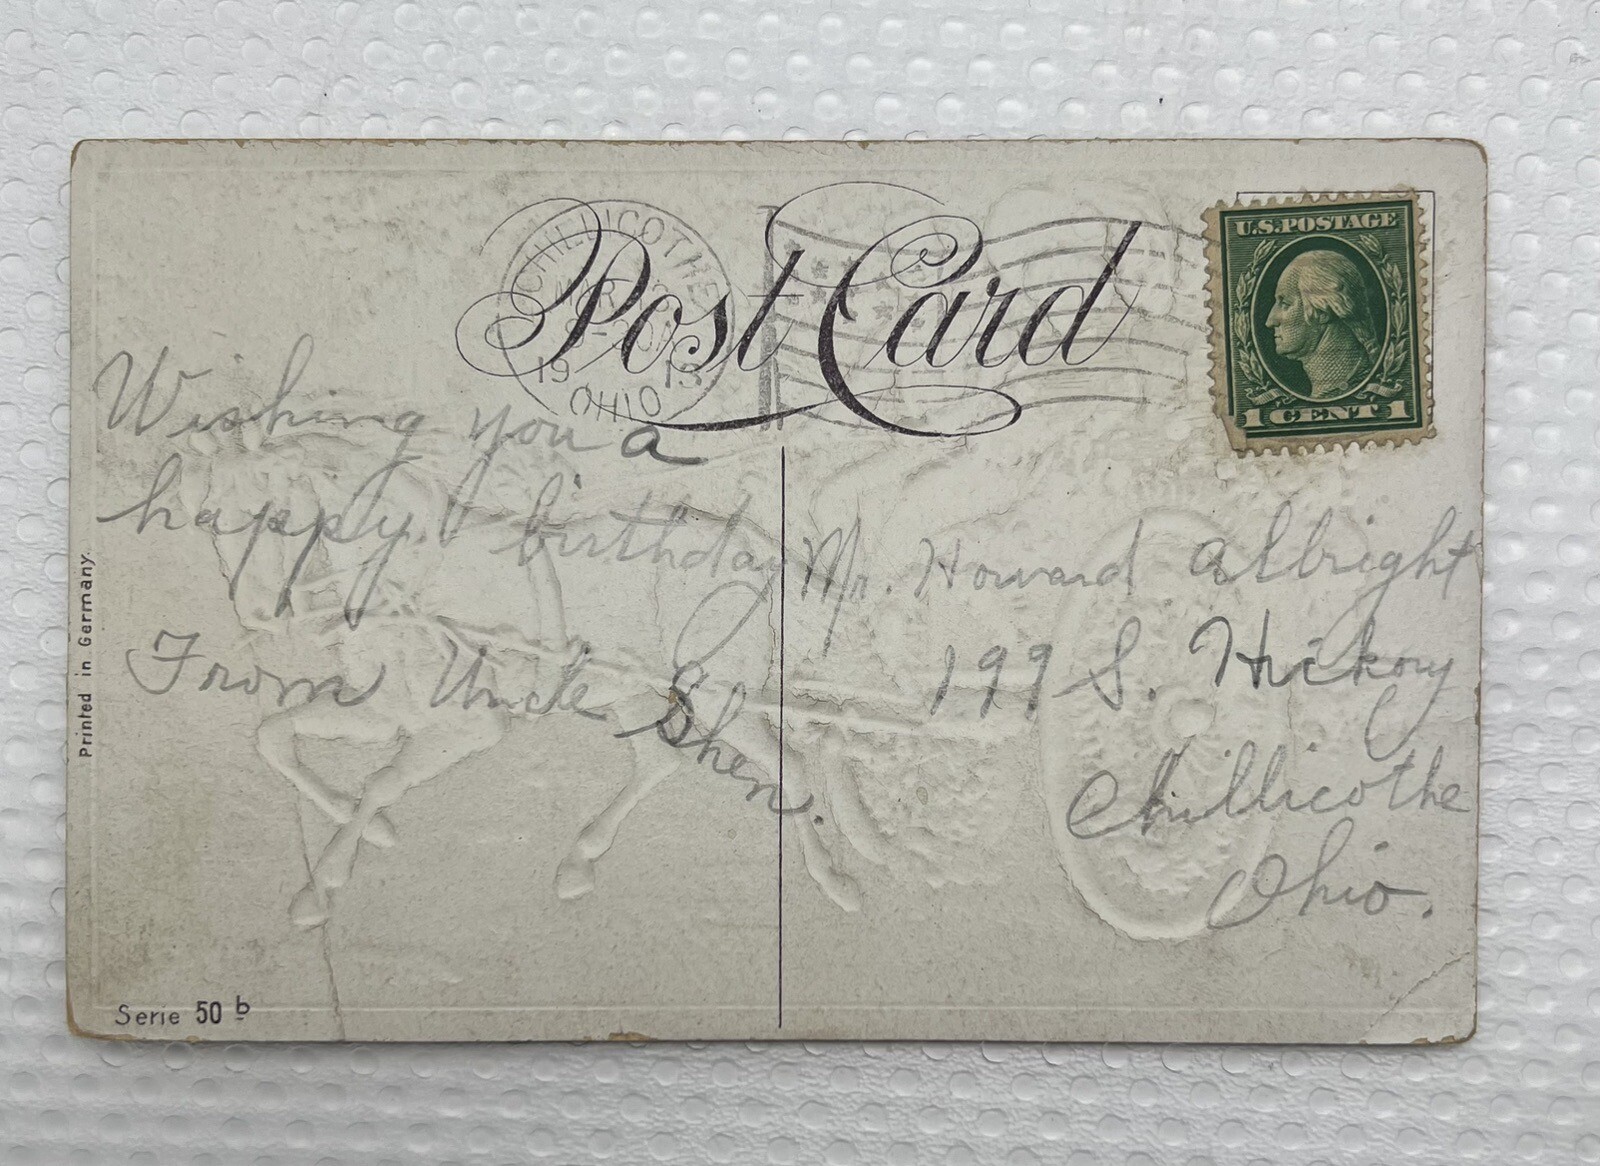 Post Card
CHILLICOTHE
19 13
OHIO
U.S. POSTAGE
1 CENT 1
Wishing you a
happy birthday
From Uncle Shen.
Mr. Howard Albright
199 S. Hickory
Chillicothe
Ohio.
Printed in Germany.
Serie 50 b